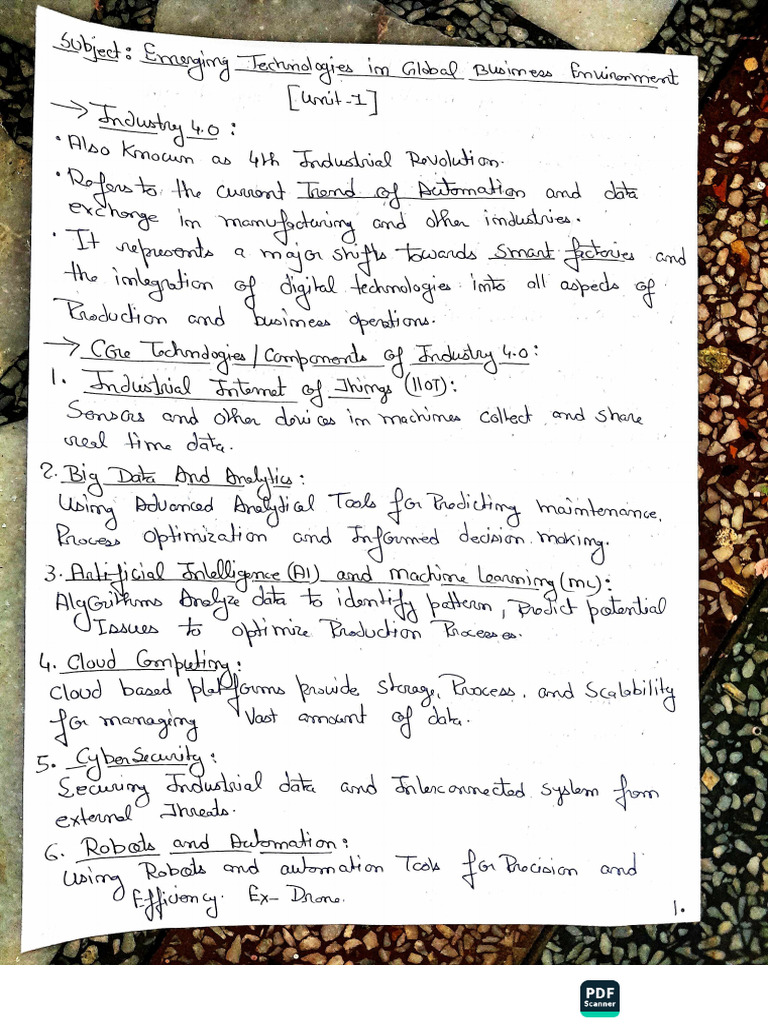 Subject: Emerging Technologies in Global Business Environment
[Unit-1]
→ Industry 4.0 :
• Also Known as 4th Industrial Revolution.
• Refers to the current Trend of Automation and data
exchange in manufacturing and other industries.
• It represents a major shifts towards smart factories and
the integration of digital technologies into all aspects of
Production and business operations.
→ Core Technologies / Components of Industry 4.0 :
1. Industrial Internet of Things (IIOT) :
Sensors and other devices in machines collect and share
real time data.
2. Big Data And Analytics :
Using Advanced Analytical Tools for Predicting maintenance,
Process optimization and Informed decision making.
3. Artificial Intelligence (AI) and Machine Learning (ML) :
Algorithms Analyze data to identify pattern, Predict potential
Issues to optimize Production Processes.
4. Cloud Computing :
Cloud based platforms provide Storage, Process, and Scalability
for managing Vast amount of data.
5. CyberSecurity :
Securing Industrial data and Interconnected System from
external Threats.
6. Robots and Automation :
Using Robots and automation Tools for Precision and
Efficiency. Ex- Drone.
1.
PDF
Scanner